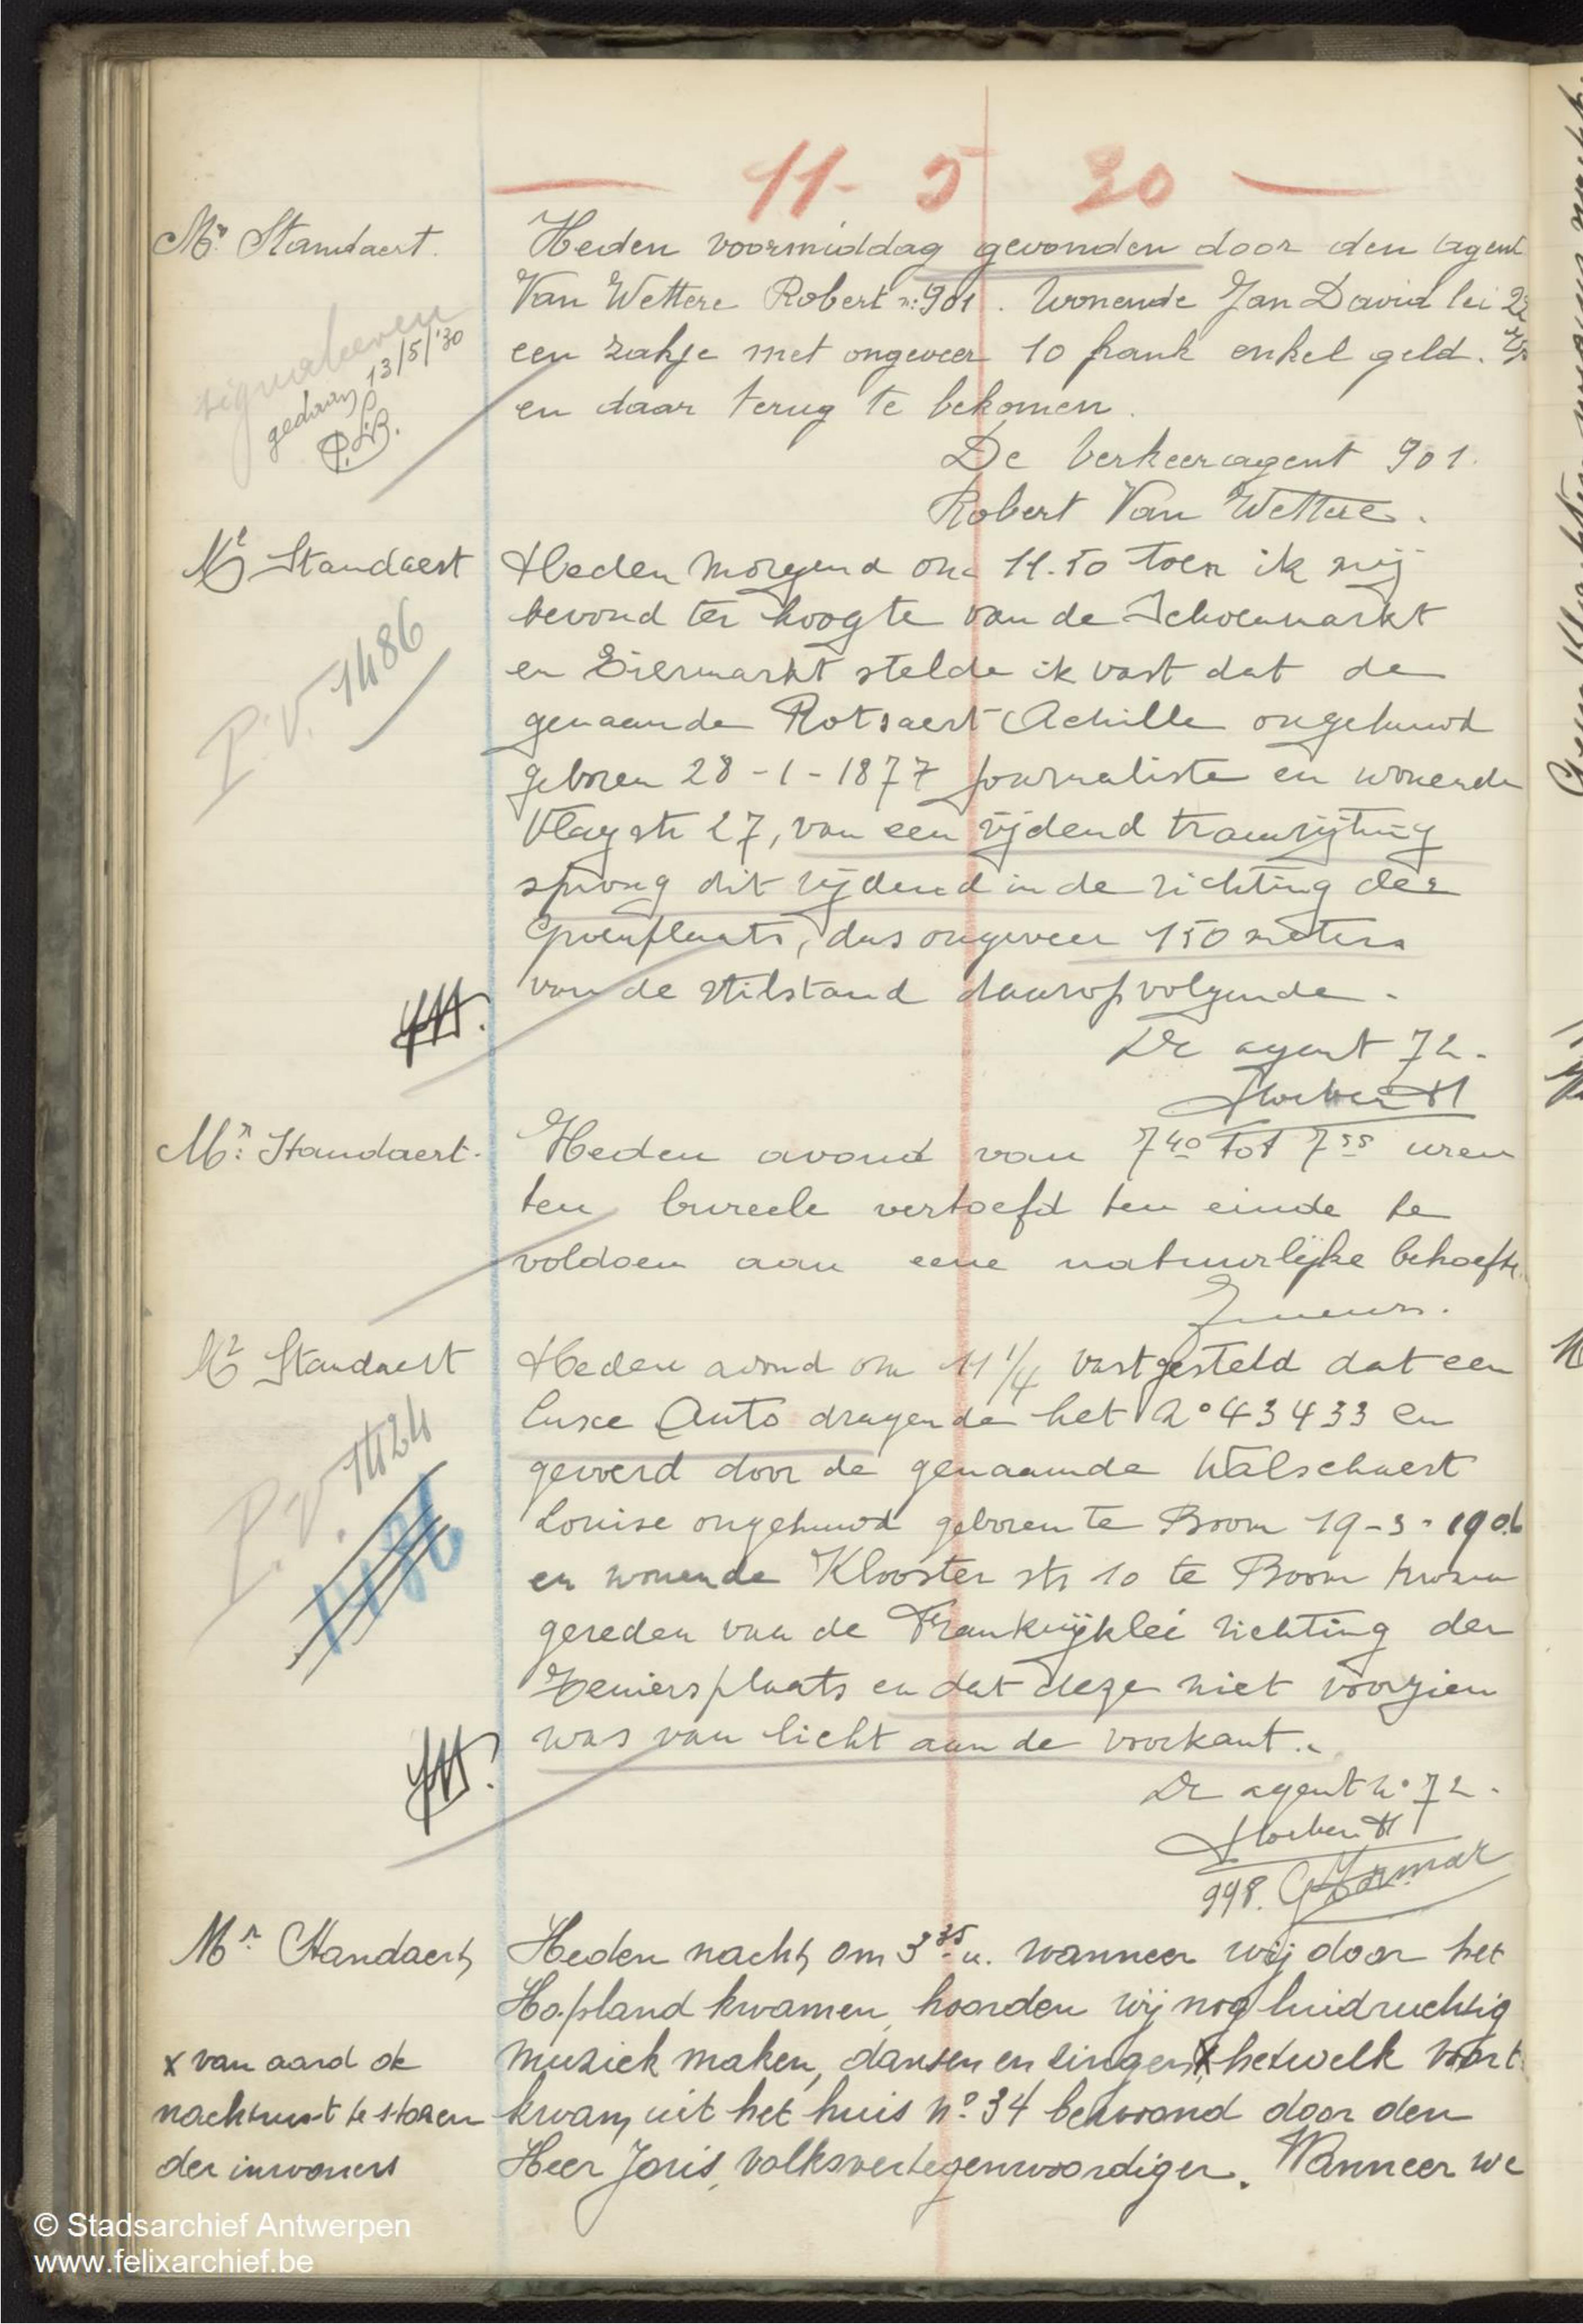 11- 5 30
Mr. Standaert.
Heden voormiddag gevonden door den agent
Van Wettere Robert n: 901. Wonende Jan David lei
een zakje met ongeveer 10 frank enkel geld.
en daar terug te bekomen.
signaleeren
gedaan 13/5/'30
De Verkeeragent 901.
Robert Van Wettere.
Mr Standaert
Heden morgend om 11.50 toen ik mij
bevond ter hoogte van de Schoenmarkt
en Eiermarkt stelde ik vast dat de
genaamde Rotsaert Achille ongehuwd
geboren 28-1-1877 journaliste en wonende
str 27, van een rijdend tramrijtuig
sprong dit rijdend in de richting der
Groenplaats, dus ongeveer 150 meters
van de stilstand daaropvolgende.
P.V. 1486
De agent 72.
Mr: Standaert.
Heden avond van 7 40 tot 7 55 uren
ten bureele vertoefd ten einde te
voldoen aan eene natuurlijke behoefte.
Mr Standaert
Heden avond om 11 1/4 vastgesteld dat een
luxe Auto dragende het n° 43433 en
gevoerd door de genaamde Walschaert
Louise ongehuwd geboren te Boom 19-3-1906
en wonende Klooster str 10 te Boom kwam
gereden van de Frankrijklei richting der
Teniersplaats en dat deze niet voorzien
was van licht aan de voorkant.
P.V. 1424
1486
De agent n° 72.
998.
Mr. Standaert
Heden nacht om 3 35 u. wanneer wij door het
Hopland kwamen, hoorden wij nog luidruchtig
muziek maken, dansen en zingen x hetwelk voort
kwam uit het huis n° 34 bewoond door den
Heer Joris, volksvertegenwoordiger. Wanneer we
x van aard de
nachtrust te storen
der inwoners
© Stadsarchief Antwerpen
www.felixarchief.be